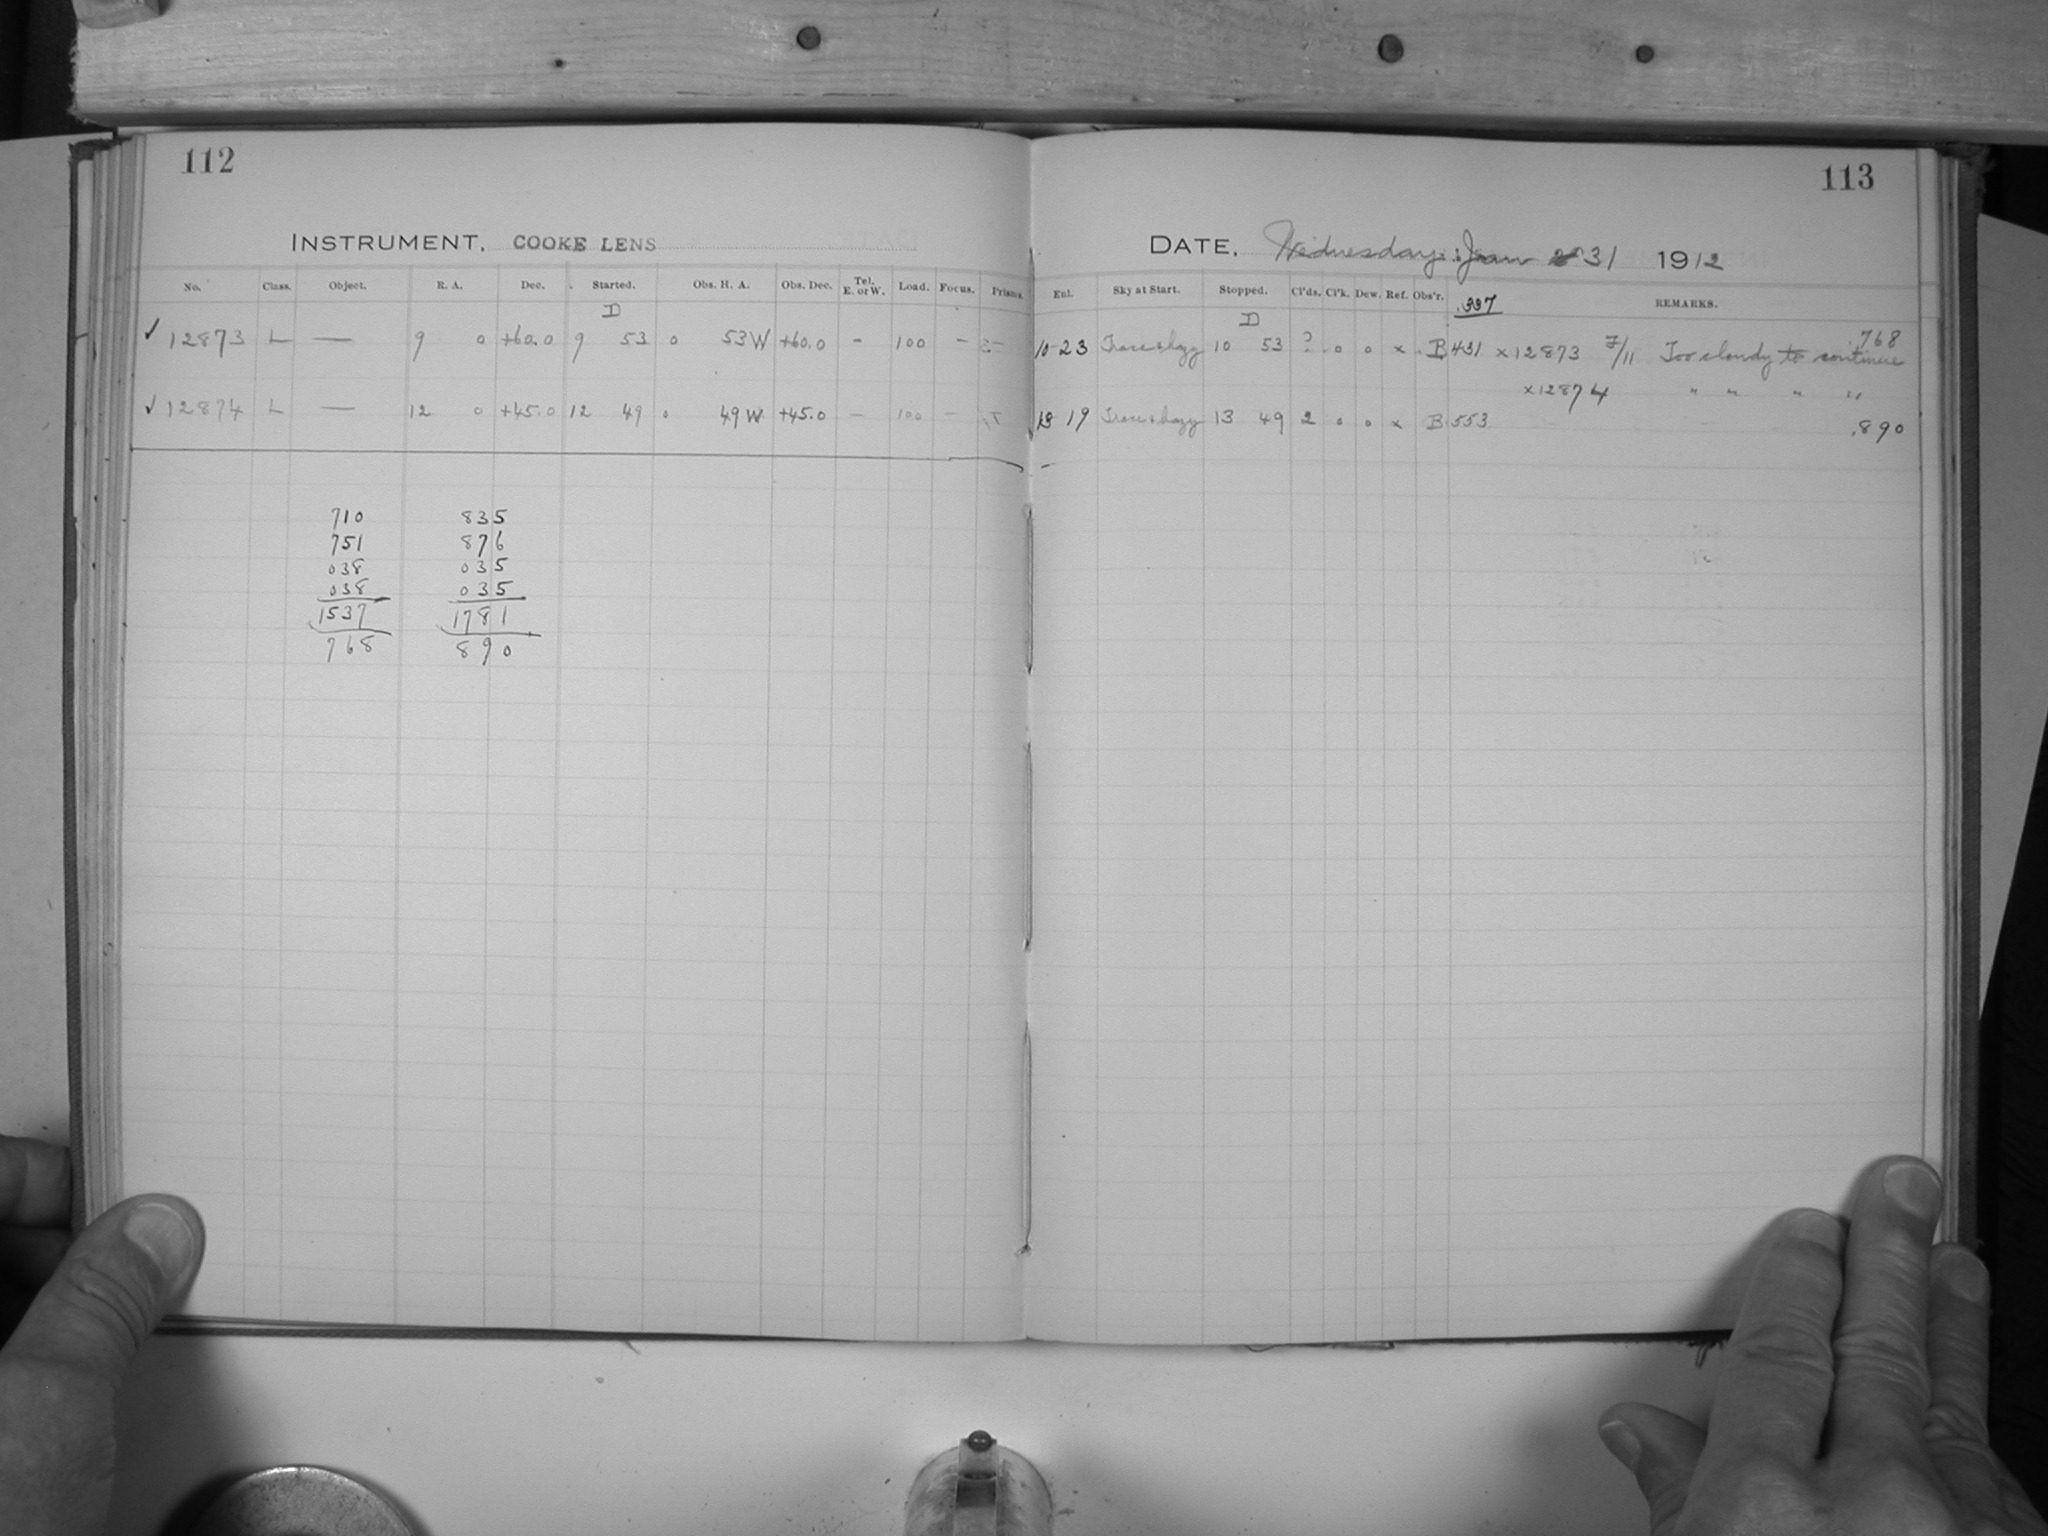 112
INSTRUMENT, COOKE LENS
No. Class. Object. R. A. Dec. Started. Obs. H. A. Obs. Dec. Tel. E. or W. Load. Focus. Prisms.
D
✓ 12873 L — 9 0 +60.0 9 53 0 53 W +60.0 - 100 -
✓ 12874 L — 12 0 +45.0 12 49 0 49 W +45.0 - 100 -
710 835
751 876
038 035
038 035
1537 1781
768 890
113
DATE, Wednesday, Jan 31 1912
Enl. Sky at Start. Stopped. Cl'ds. Cl'k. Dew. Ref. Obs'r. .337 REMARKS.
D
768
10 23 hazy 10 53 ? 0 0 x B 431 x 12873 7/11 Too cloudy to continue
x 12874 " " " "
13 19 hazy 13 49 2 0 0 x B 553 .890